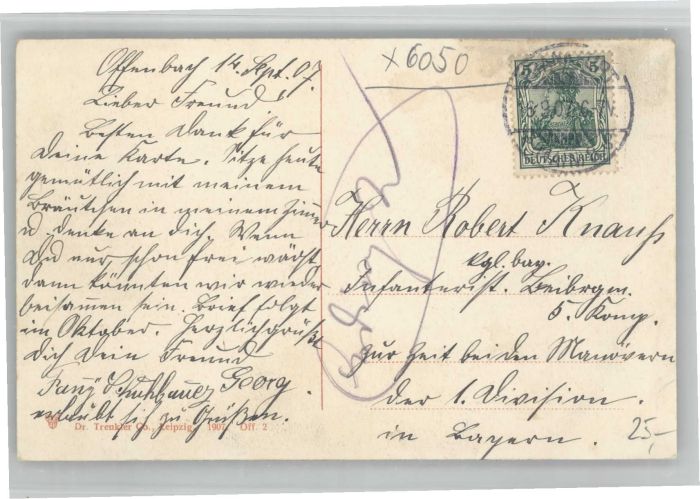 Offenbach 14. Sept. 07.
Lieber Freund!
Besten Dank für
Deine Karte. Sitze heute
gemütlich mit meinem
Bräutchen in meinem Zimmer
u. denke an dich. Wenn
Du nur schon frei wärst
dann könnten wir wieder
beisammen sein. Brief folgt
im Oktober. Herzlich grüßt
Dich Dein Freund
Georg.
erlaubt sich zu Grüßen.
Dr. Trenkler Co., Leipzig. 1907. Off. 2
x6050
5 5
DEUTSCHES REICH
Herrn Robert Knauß
kgl. bay.
Infanterist. Leibrgm.
5. Komp.
zur Zeit bei den Manövern
der 1. Division.
in Bayern.
25,-